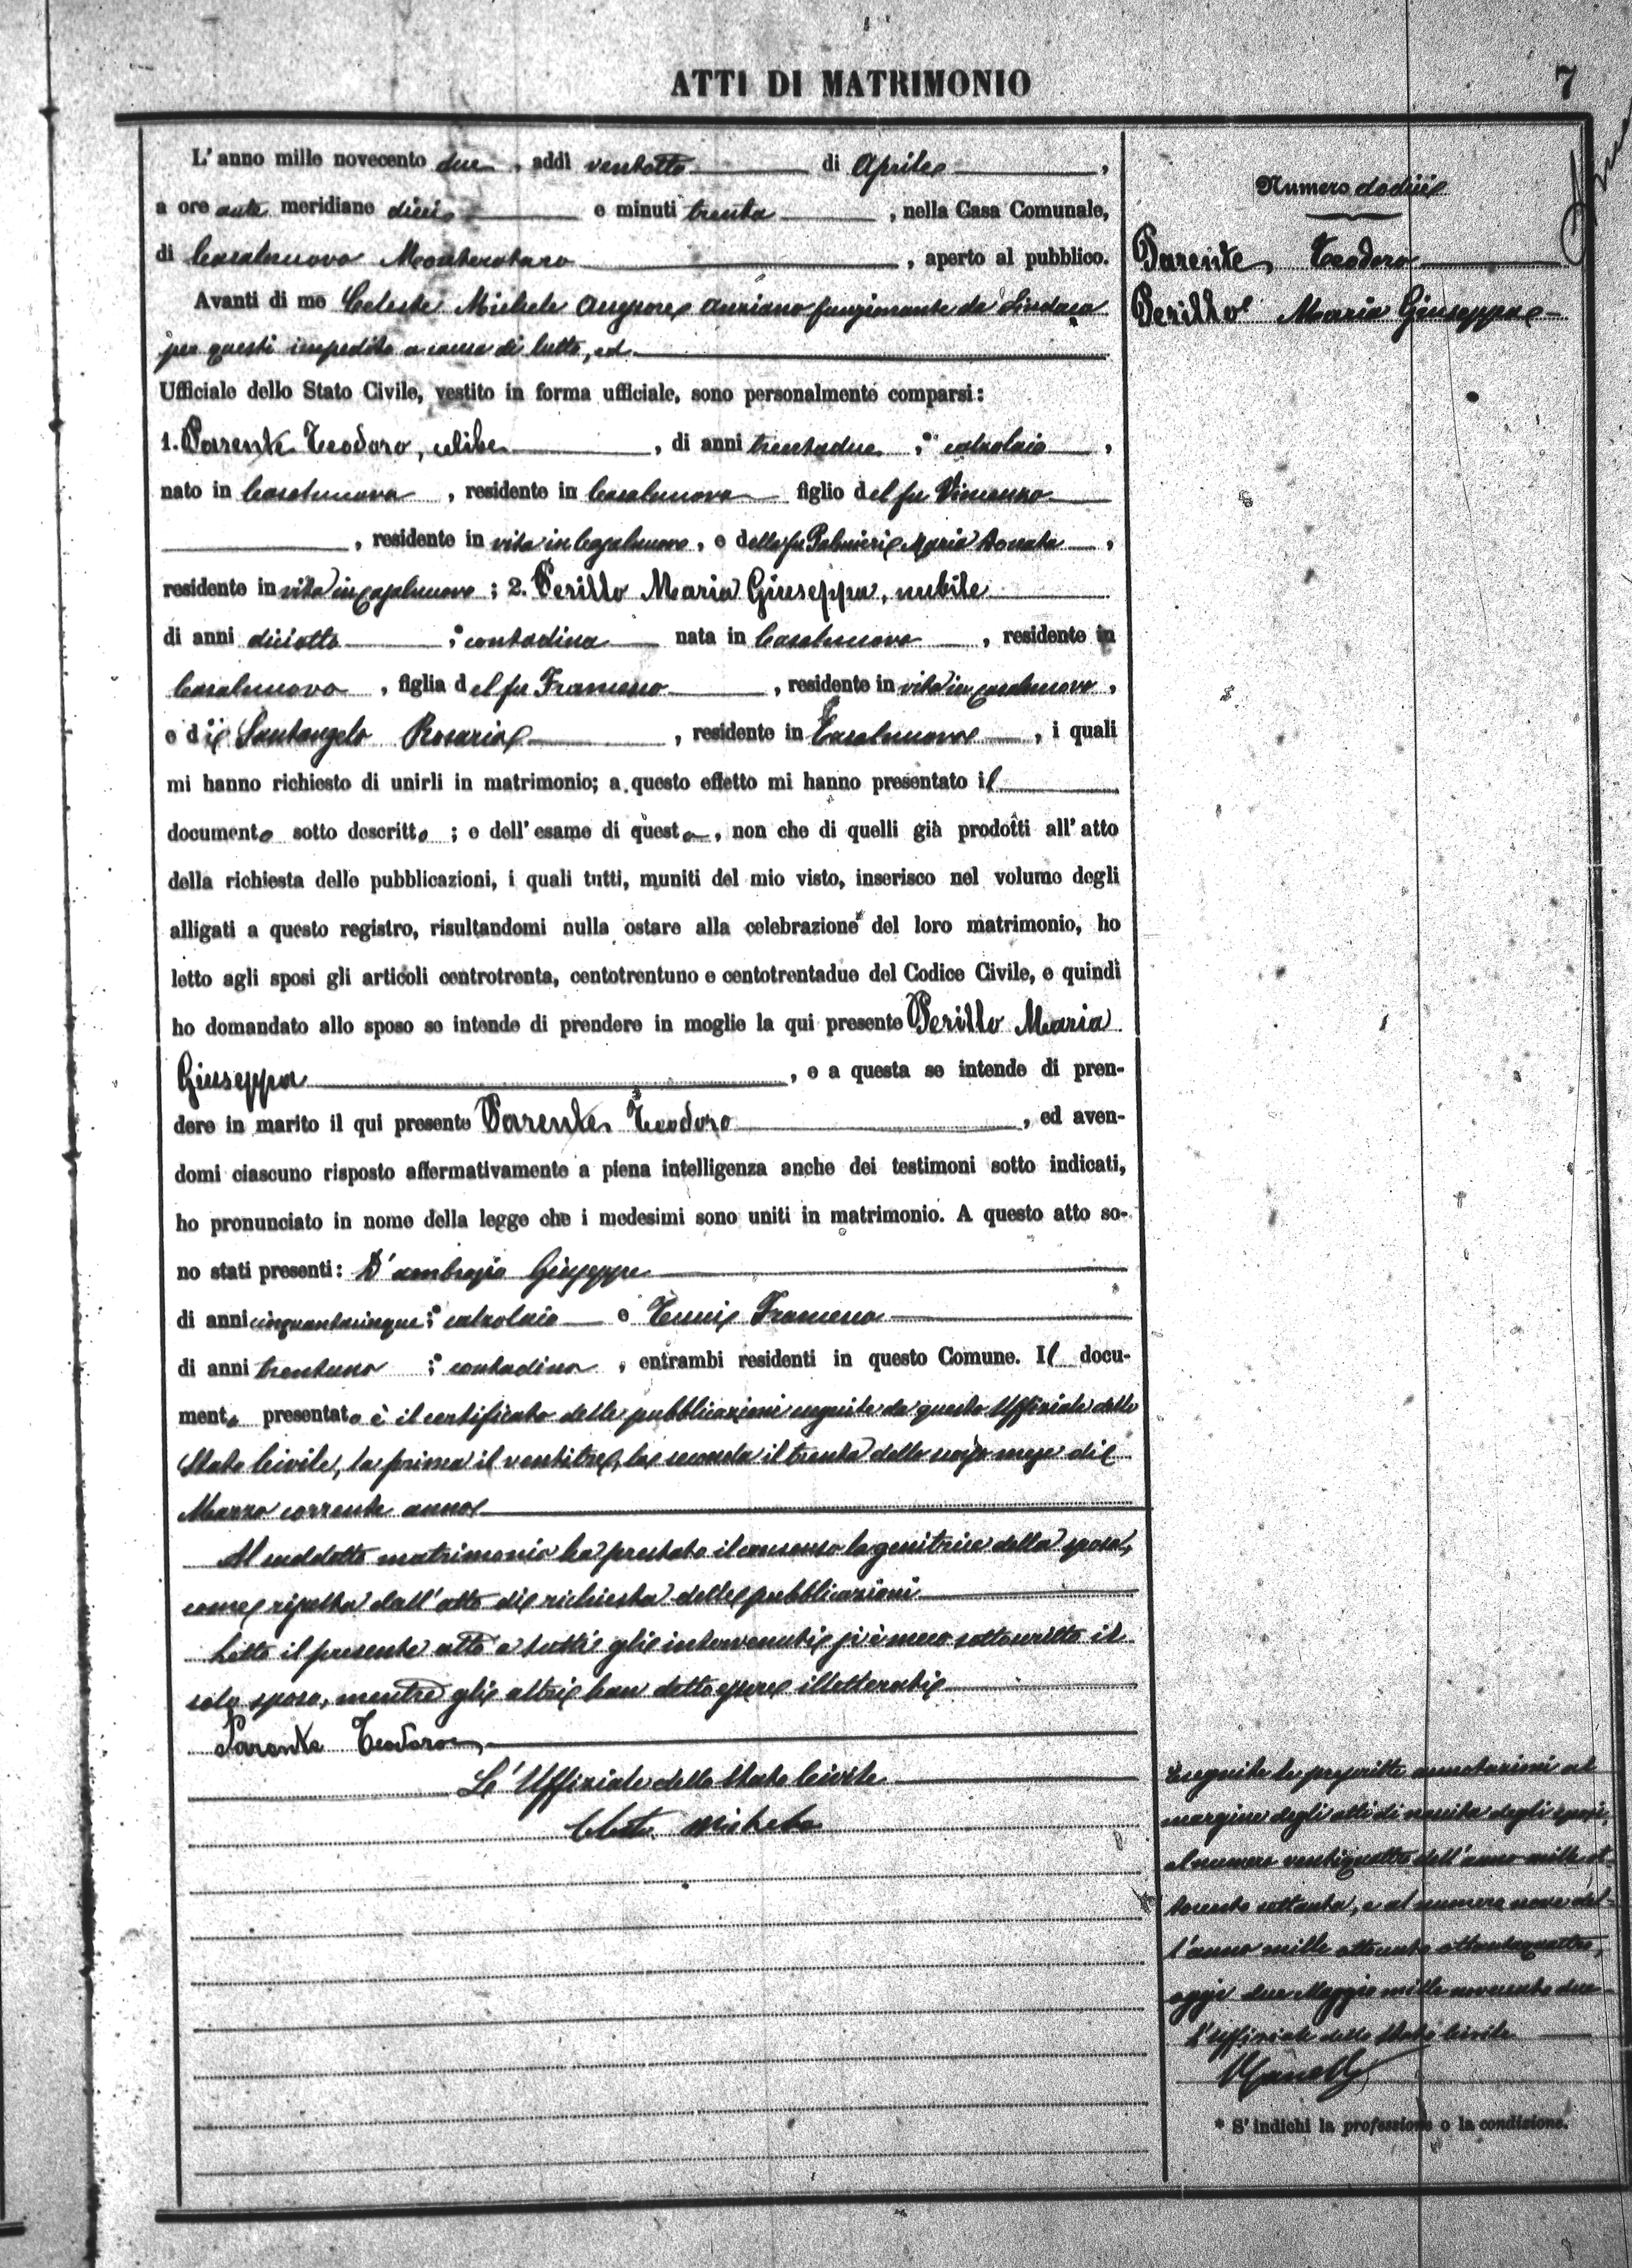 ATTI DI MATRIMONIO
7
L'anno mille novecento due, addì ventotto di Aprile,
a ore ante meridiane dieci e minuti trenta, nella Casa Comunale,
di Casalnuovo Monterotaro, aperto al pubblico.
Avanti di me Celeste Michele Assessore anziano funzionante da Sindaco
per questi impedito a causa di lutto, ed
Ufficiale dello Stato Civile, vestito in forma ufficiale, sono personalmente comparsi:
1. Parente Teodoro, celibe, di anni trentadue, calzolaio,
nato in Casalnuovo, residente in Casalnuovo figlio del fu Vincenzo
, residente in vita in Casalnuovo, e della fu Palmieri Maria Donata,
residente in vita in Casalnuovo; 2. Perillo Maria Giuseppa, nubile
di anni diciotto; contadina nata in Casalnuovo, residente in
Casalnuovo, figlia del fu Francesco, residente in vita in Casalnuovo,
e di Santangelo Rosaria, residente in Casalnuovo, i quali
mi hanno richiesto di unirli in matrimonio; a questo effetto mi hanno presentato il
documento sotto descritto; e dell'esame di questo, non che di quelli già prodotti all'atto
della richiesta delle pubblicazioni, i quali tutti, muniti del mio visto, inserisco nel volume degli
alligati a questo registro, risultandomi nulla ostare alla celebrazione del loro matrimonio, ho
letto agli sposi gli articoli centrotrenta, centotrentuno e centotrentadue del Codice Civile, e quindi
ho domandato allo sposo se intende di prendere in moglie la qui presente Perillo Maria
Giuseppa, e a questa se intende di pren-
dere in marito il qui presente Parente Teodoro, ed aven-
domi ciascuno risposto affermativamente a piena intelligenza anche dei testimoni sotto indicati,
ho pronunciato in nome della legge che i medesimi sono uniti in matrimonio. A questo atto so-
no stati presenti: D'ambrosio Giuseppe
di anni cinquantacinque; calzolaio e Francesco
di anni trentuno; contadino, entrambi residenti in questo Comune. Il docu-
mento presentato è il certificato delle pubblicazioni eseguite da questo Uffiziale dello
Stato Civile, la prima il ventitre, la seconda il trenta dello scorso mese di
Marzo corrente anno
Al suddetto matrimonio ha prestato il consenso la genitrice della sposa,
come risulta dall'atto di richiesta delle pubblicazioni
Letto il presente atto a tutti gli intervenuti si è meco sottoscritto il
solo sposo, mentre gli altri han detto essere illetterati
Parente Teodoro
L'Uffiziale dello Stato Civile
Celeste Michele
Numero dodici
Parente Teodoro
Perillo Maria Giuseppa
Eseguite le prescritte annotazioni al
margine degli atti di nascita degli sposi,
al numero ventiquattro dell'anno mille ot-
tocento settanta, e al numero nove del-
l'anno mille ottocento ottantaquattro,
oggi due Maggio mille novecento due
L'Uffiziale dello Stato Civile
* S'indichi la professione o la condizione.